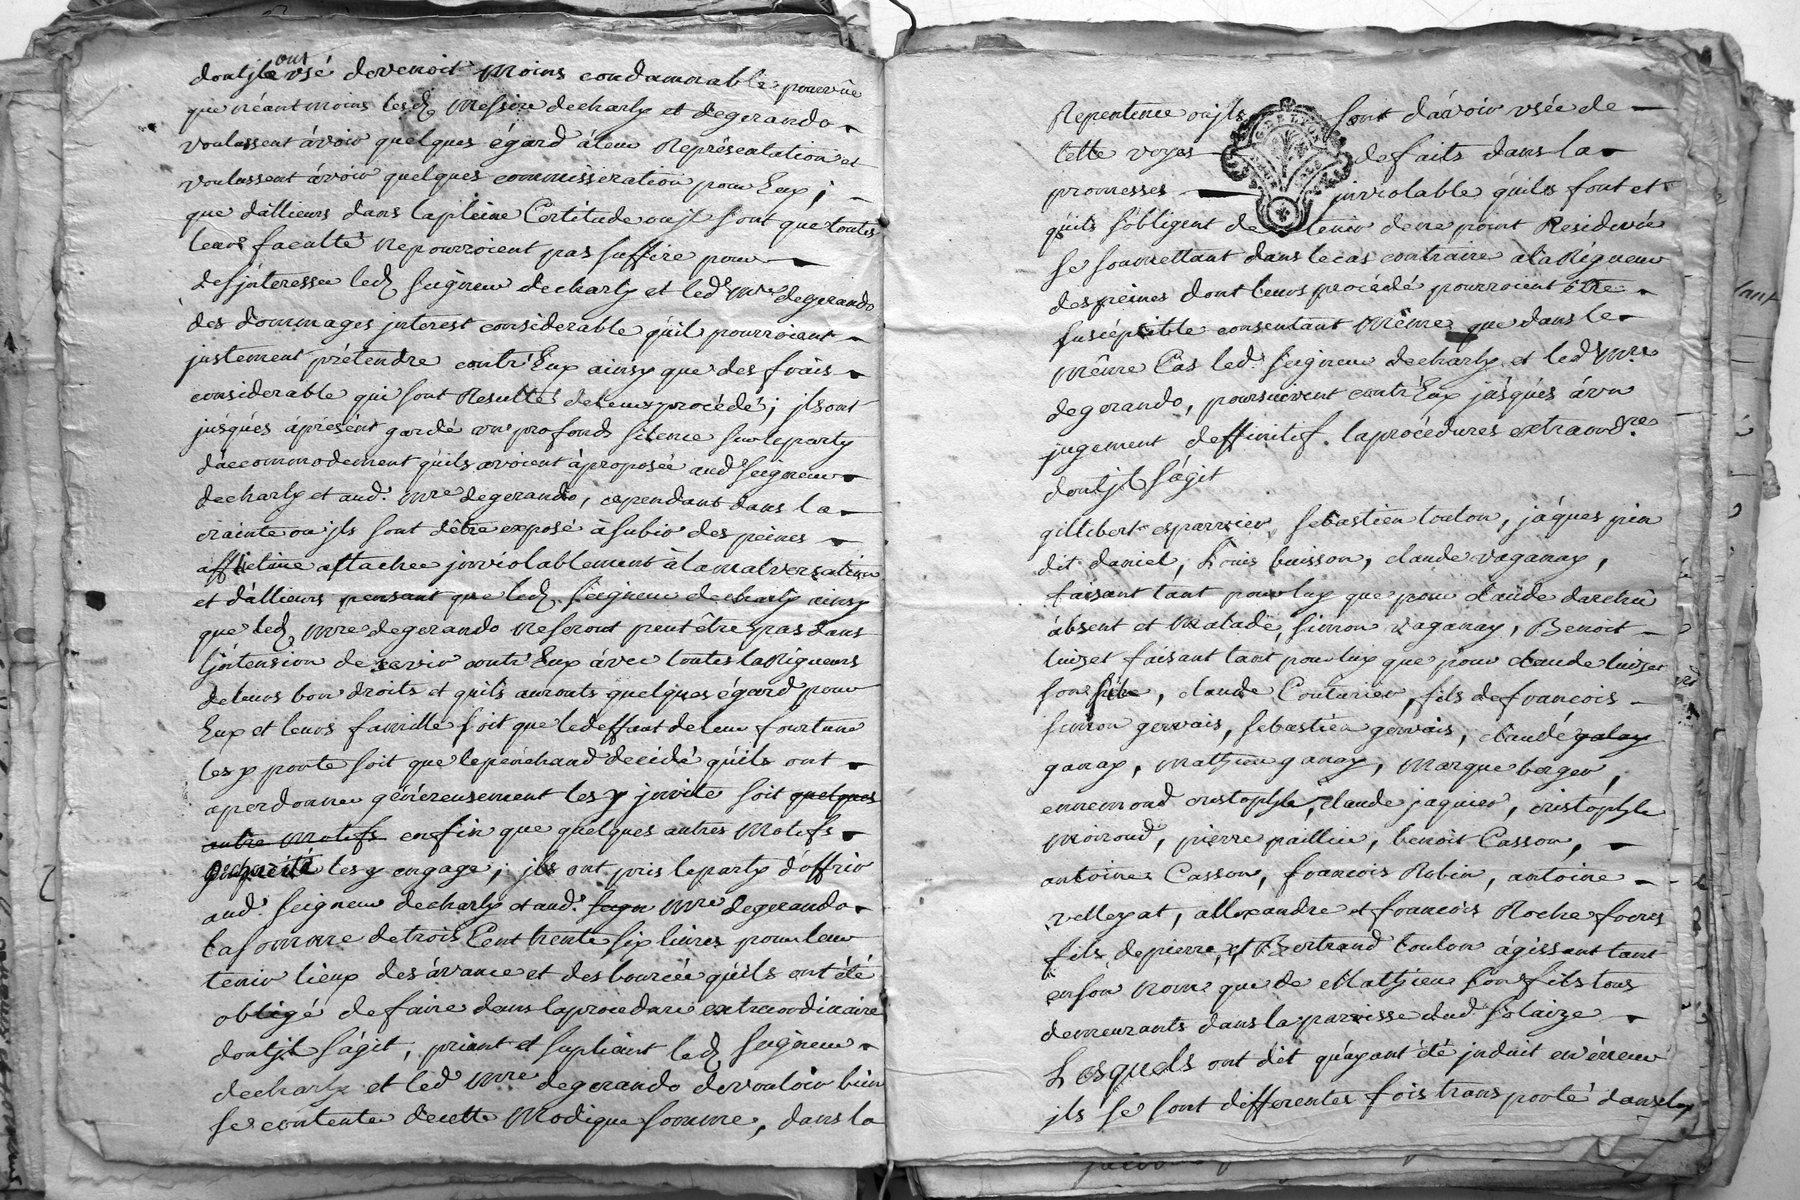 dont jls ont usé devenoit moins condamnable pourvûe
que néantmoins lesd. Messire decharly et degerando
voulussent ávoir quelques égard áleur Représentation et
voulussent ávoir quelques commisseration pour Eux ;
que d'ailleurs dans lapleine Certitude ou jls sont que toutes
leurs faculté nepourroient pas suffire pour
desjnteresser led. seigneur decharly et led. mre degerando
des dommages jnterest considerable quil pourroient
justement prétendre contr'Eux ainsy que des frais
considerable qui sont Resulté deleur procédé ; jls ont
jusqués áprésent gardé un profonds silence sur leparty
d'accommodement quils avoient áproposée aud. seigneur
decharly et aud. mre degerando, cependant dans la
crainte ou jls sont d'être exposé à subir des peines
afflictive attachee jnviolablement à la malversation
et d'ailleurs pensant que led. seigneur decharly ainsy
que led. mre degerando neseront peut être pas dans
l'jntension de sevir contr'Eux ávec toutes la Rigueurs
deleurs bon droits et quils auronts quelques égard pour
Eux et leurs famille soit que ledeffaut deleur fourtune
les y porte soit que lepenchand decidé quils ont
aperdonner généreusement les y jnvite soit quelques
autre motifs enfin que quelques autres motifs
decharité les y engage ; jls ont pris leparty d'offrir
aud. seigneur decharly et aud. seign mre degerando
lasomme detrois Cent trente six livres pour leur
tenir lieux des ávance et desbourcée quils ont été
obligé defaire dans laprocedure extraordinaire
dont jl s'ágit, priant et supliant led. seigneur
decharly et led. mre degerando devouloir bien
se contente decette modique somme, dans la
Repentence ou jls sont d'ávoir usée de
cette voyes defaits dans la
promesses jnviolable quils font et
quils s'obligent de tenir dene point Residivée
se soumettant dans lecas contraire ala Rigueur
despeines dont leurs procédé pourroient être
suscéptible consentant même que dans le
même Cas led. seigneur decharly et led. mre
degerando, poursuivent contr'Eux jusqués á un
jugement deffinitif. laprocédures extraordre
dont jl s'ágit
gillibert esparrier, sebastien toulon, jáques pin
dit daniel, Louis buisson, claude vaganay,
faisant tant pour luy que pour claude darchû
ábsent et malade, simon vaganay, Benoit
luizet faisant tant pour luy que pour claude luizet
son frere, claude Couturier, fils de francois
simon gervais, sebastién gervais, claudé galay
ganay, mathieu ganay, marque berger,
ennemond cristophle, claude jaquier, cristophle
moiroud, pierre paillier, benoit Casson,
antoine Casson, francois Robin, antoine
velleyat, allexandre et francois Roche freres
fils depierre, et Bertrand toulon ágissant tant
enson nom que de Mathieu son fils tous
demeurants dans la parroisse dud. solaize
Lesquels ont dit qu'ayant été jnduit en érreur
jls se sont differentes fois transporté dans les